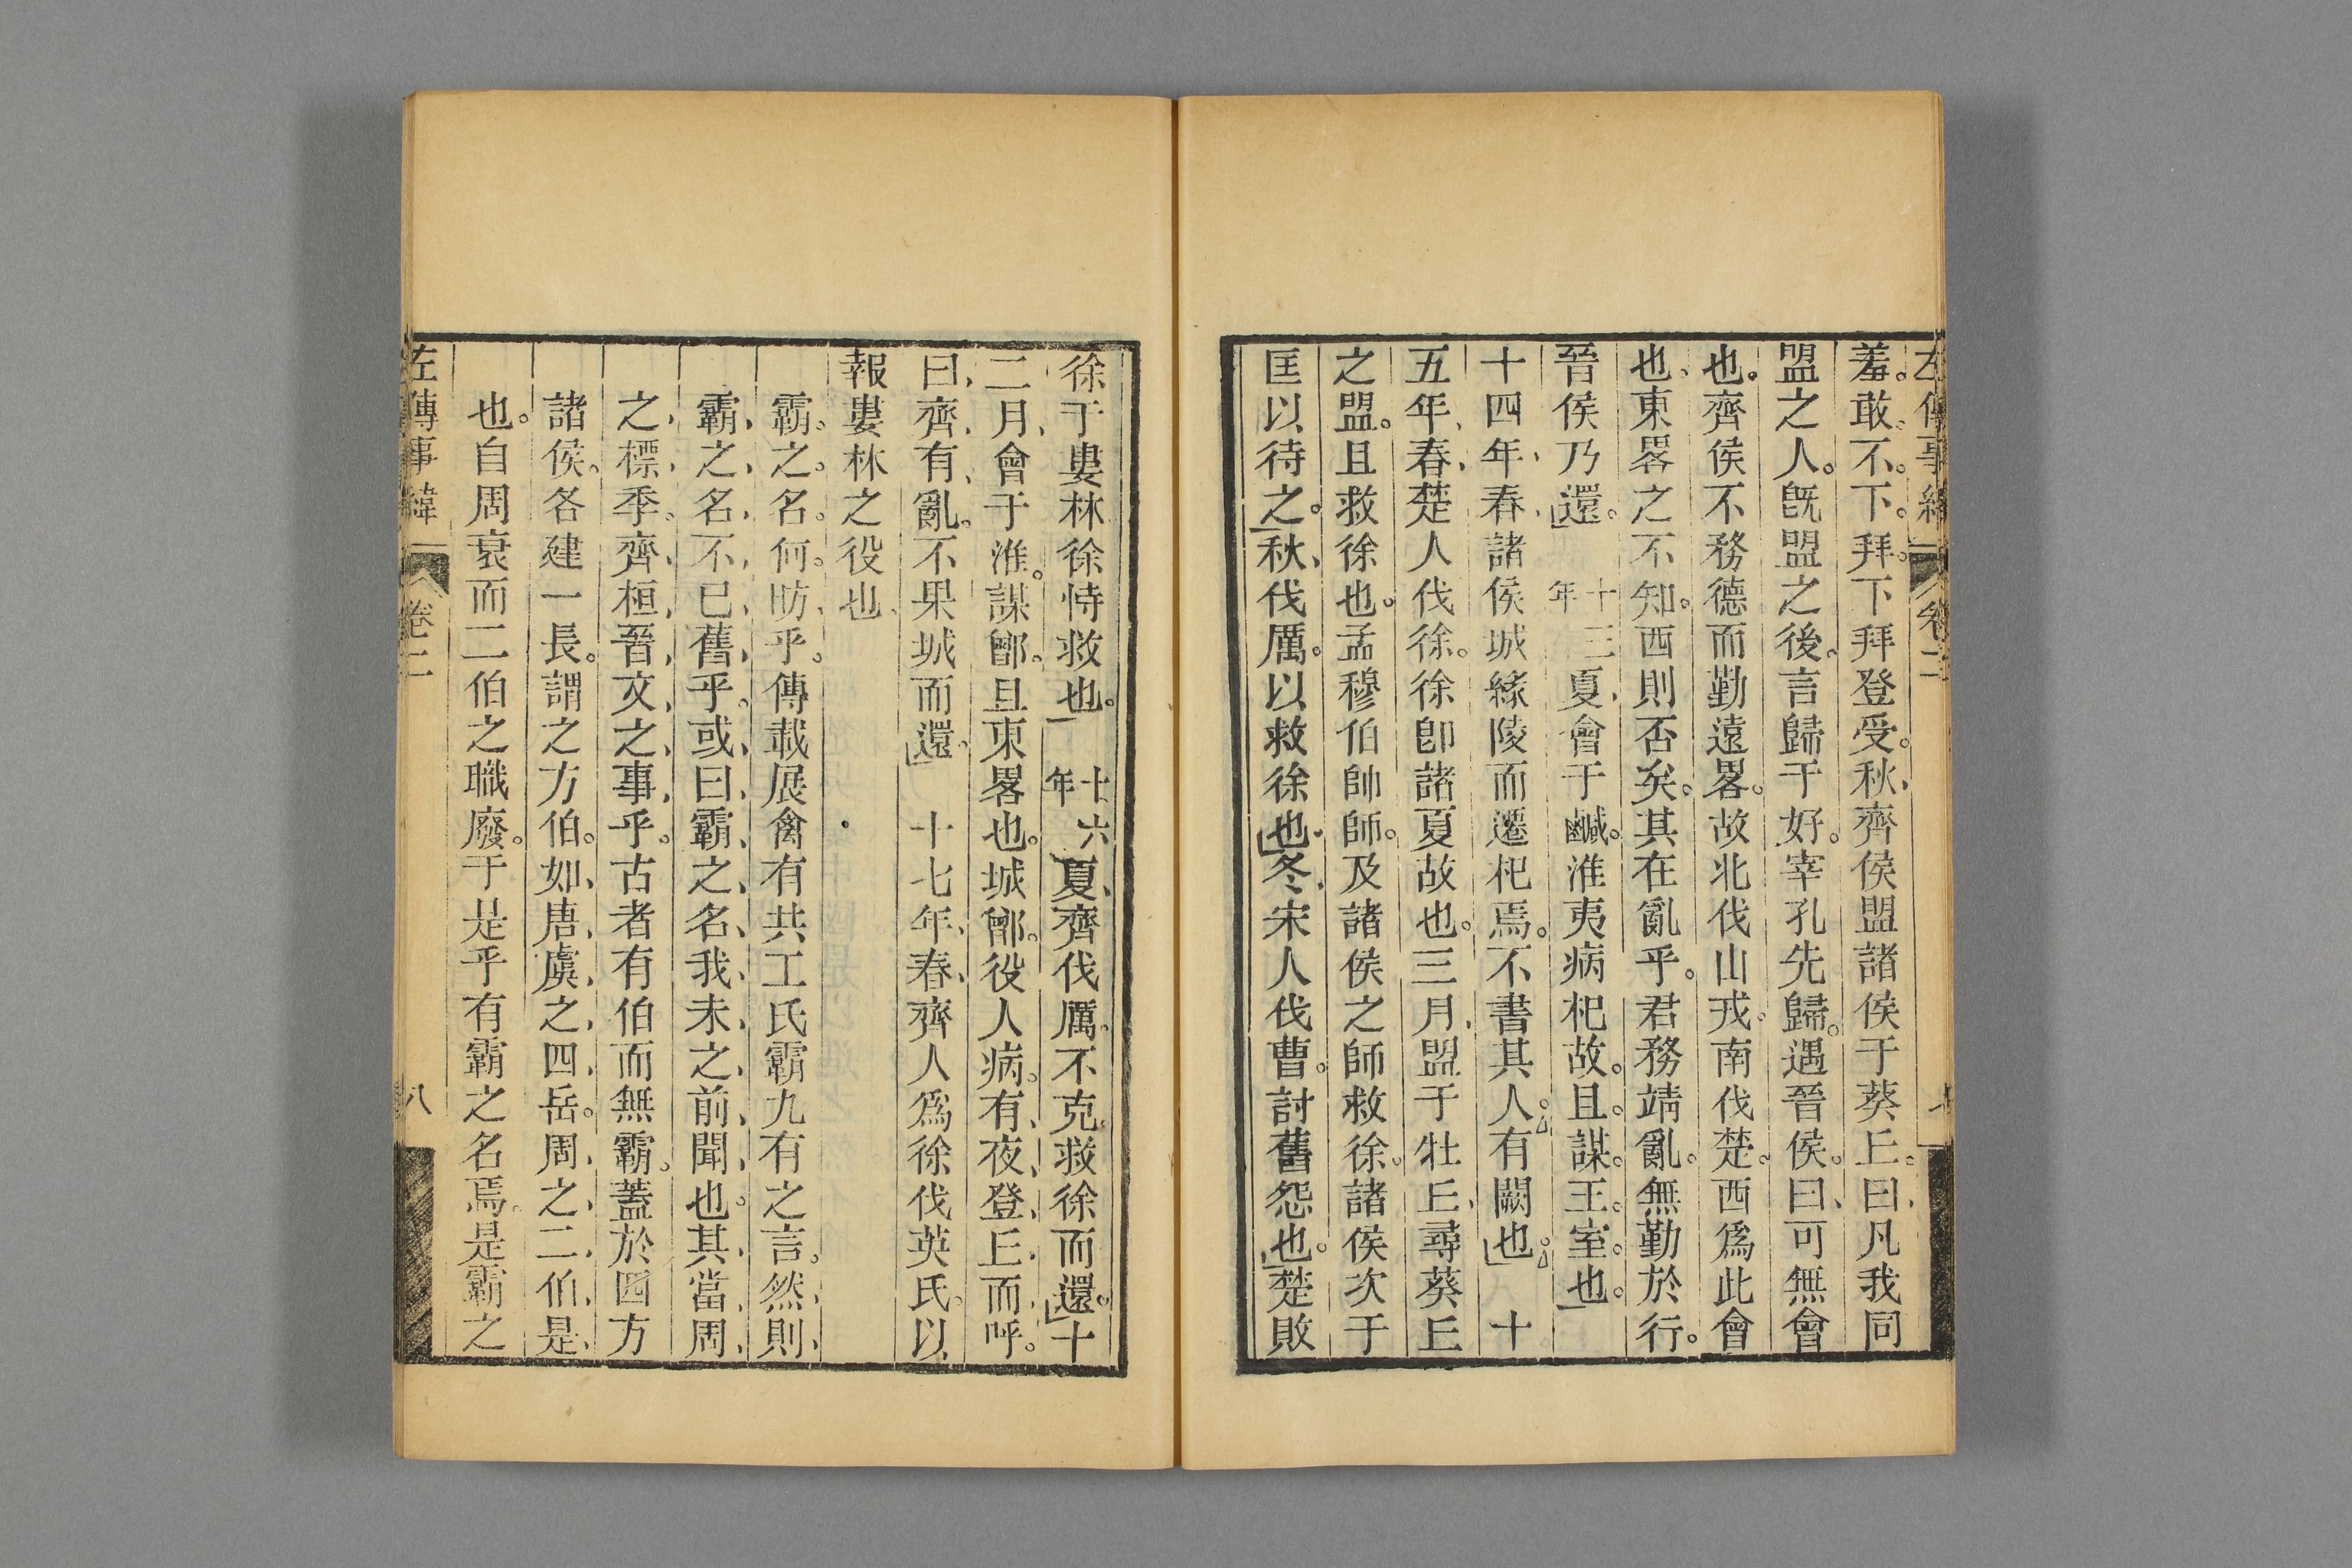 左傳事緯 卷二 七
羞敢不下拜下拜登受秋齊侯盟諸侯于葵丘曰凡我同
盟之人旣盟之後言歸于好宰孔先歸遇晉侯曰可無會
也齊侯不務德而勤遠畧故北伐山戎南伐楚西爲此會
也東畧之不知西則否矣其在亂乎君務靖亂無勤於行
晉侯乃還 十三年夏會于鹹淮夷病杞故且謀王室也
十四年春諸侯城緣陵而遷杞焉不書其人有闕也 十
五年春楚人伐徐徐卽諸夏故也三月盟于牡丘尋葵丘
之盟且救徐也孟穆伯帥師及諸侯之師救徐諸侯次于
匡以待之秋伐厲以救徐也冬宋人伐曹討舊怨也楚敗
徐于婁林徐恃救也 十六年夏齊伐厲不克救徐而還十
二月會于淮謀鄫且東畧也城鄫役人病有夜登丘而呼
曰齊有亂不果城而還 十七年春齊人爲徐伐英氏以
報婁林之役也
霸之名何昉乎傳載展禽有共工氏霸九有之言然則
霸之名不已舊乎或曰霸之名我未之前聞也其當周
之標季齊桓晉文之事乎古者有伯而無霸蓋於四方
諸侯各建一長謂之方伯如唐虞之四岳周之二伯是
也自周衰而二伯之職廢于是乎有霸之名焉是霸之
左傳事緯 卷二 八